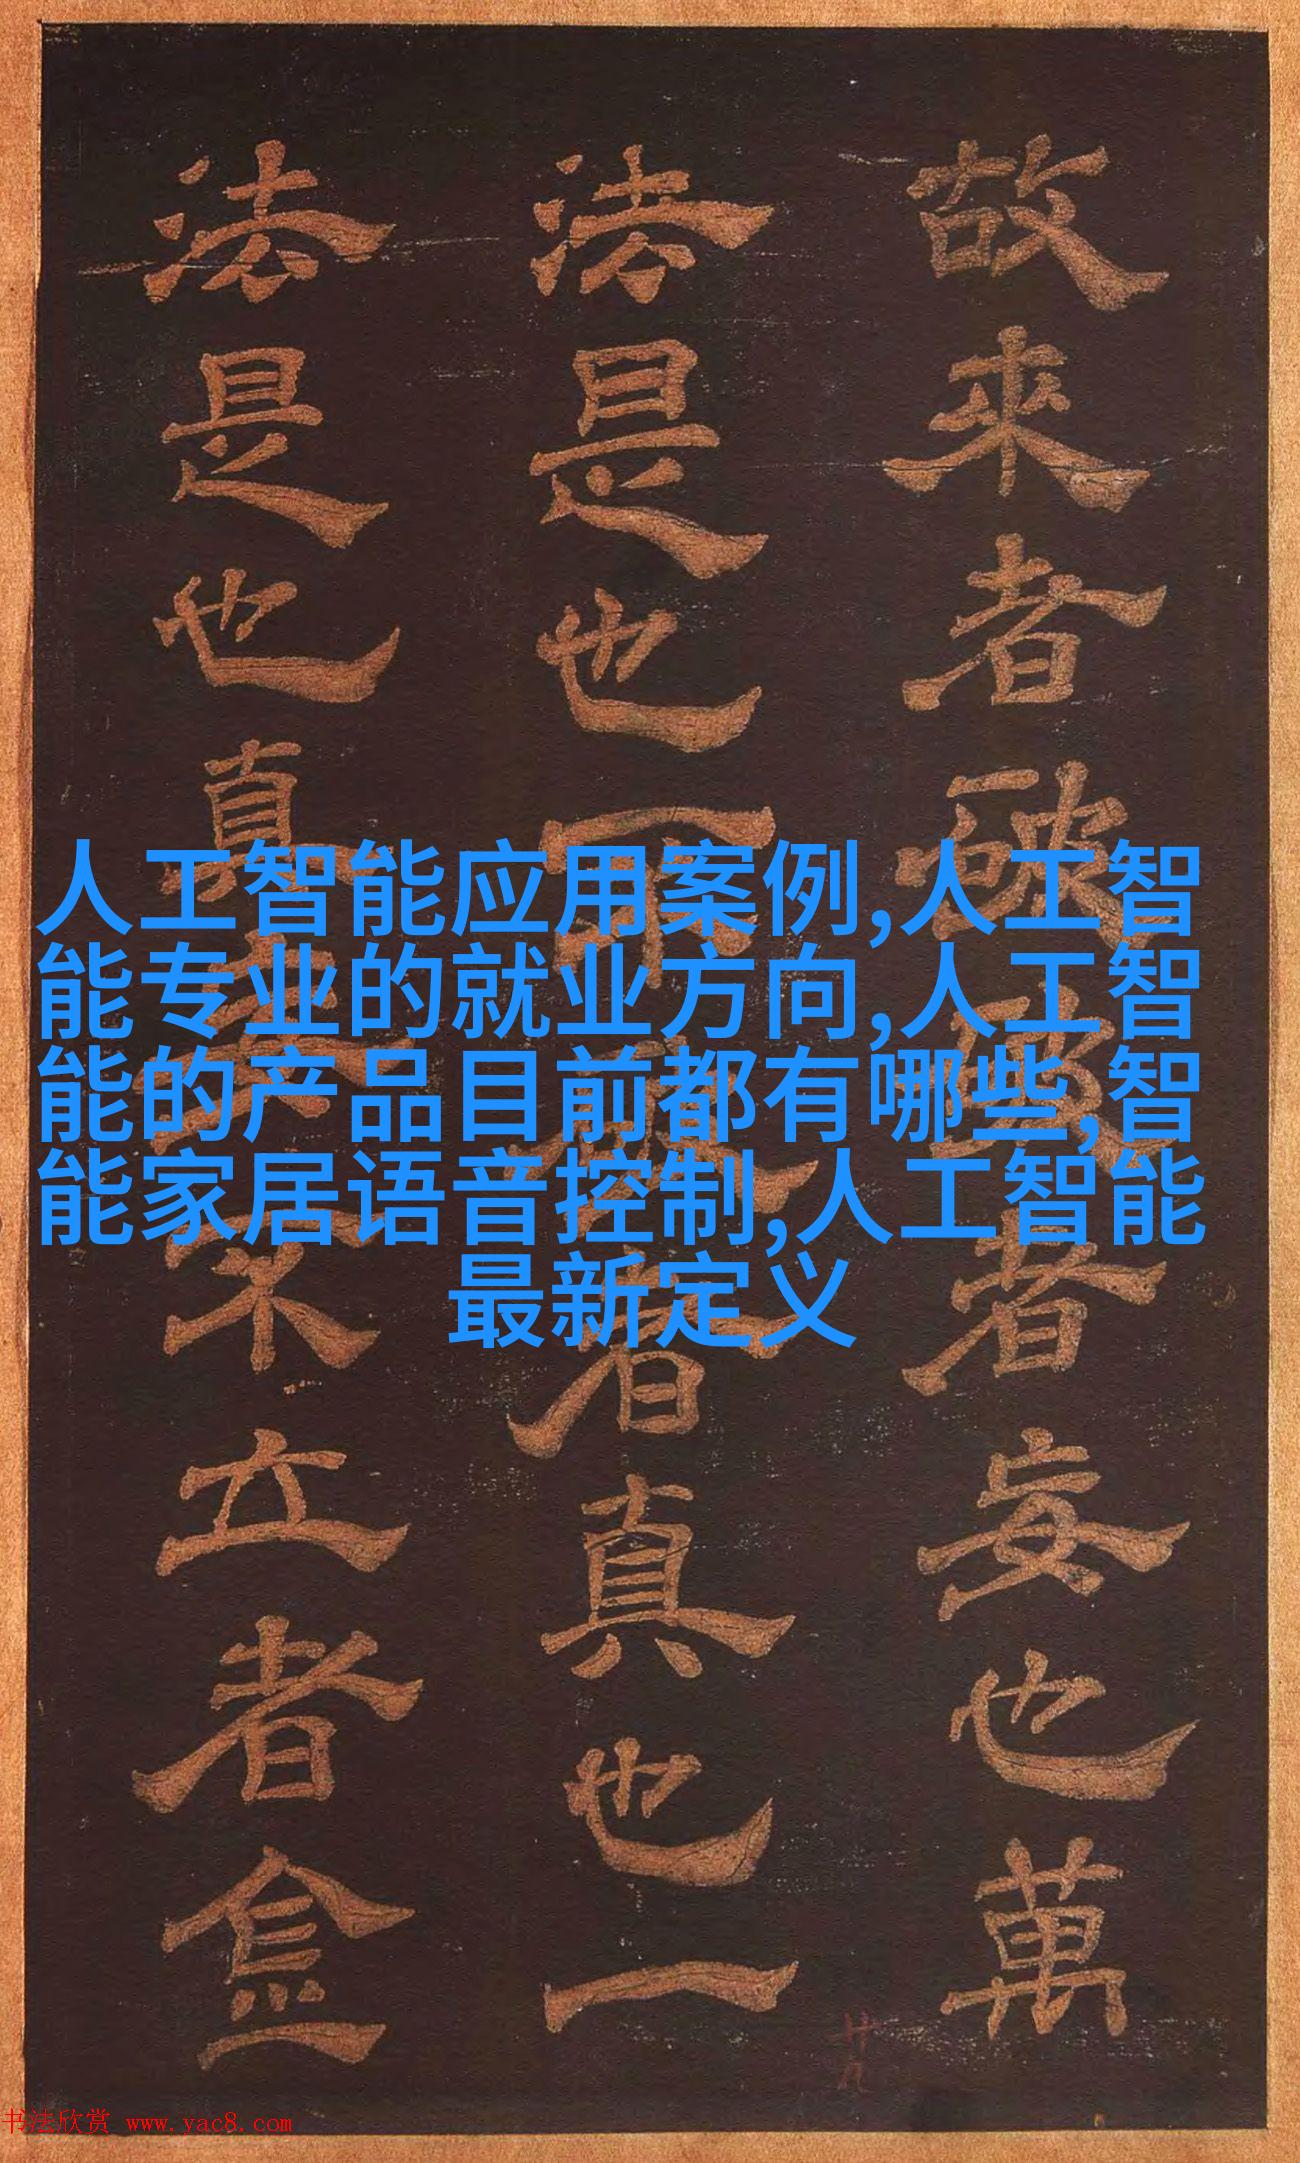 故來者者妄也萬
法是也者真也一
法是也真不立者
人工智能应用案例,人工智
能专业的就业方向,人工智
能的产品目前都有哪些,智
能家居语音控制,人工智能
最新定义
廿九
书法欣赏 www.yac8.com